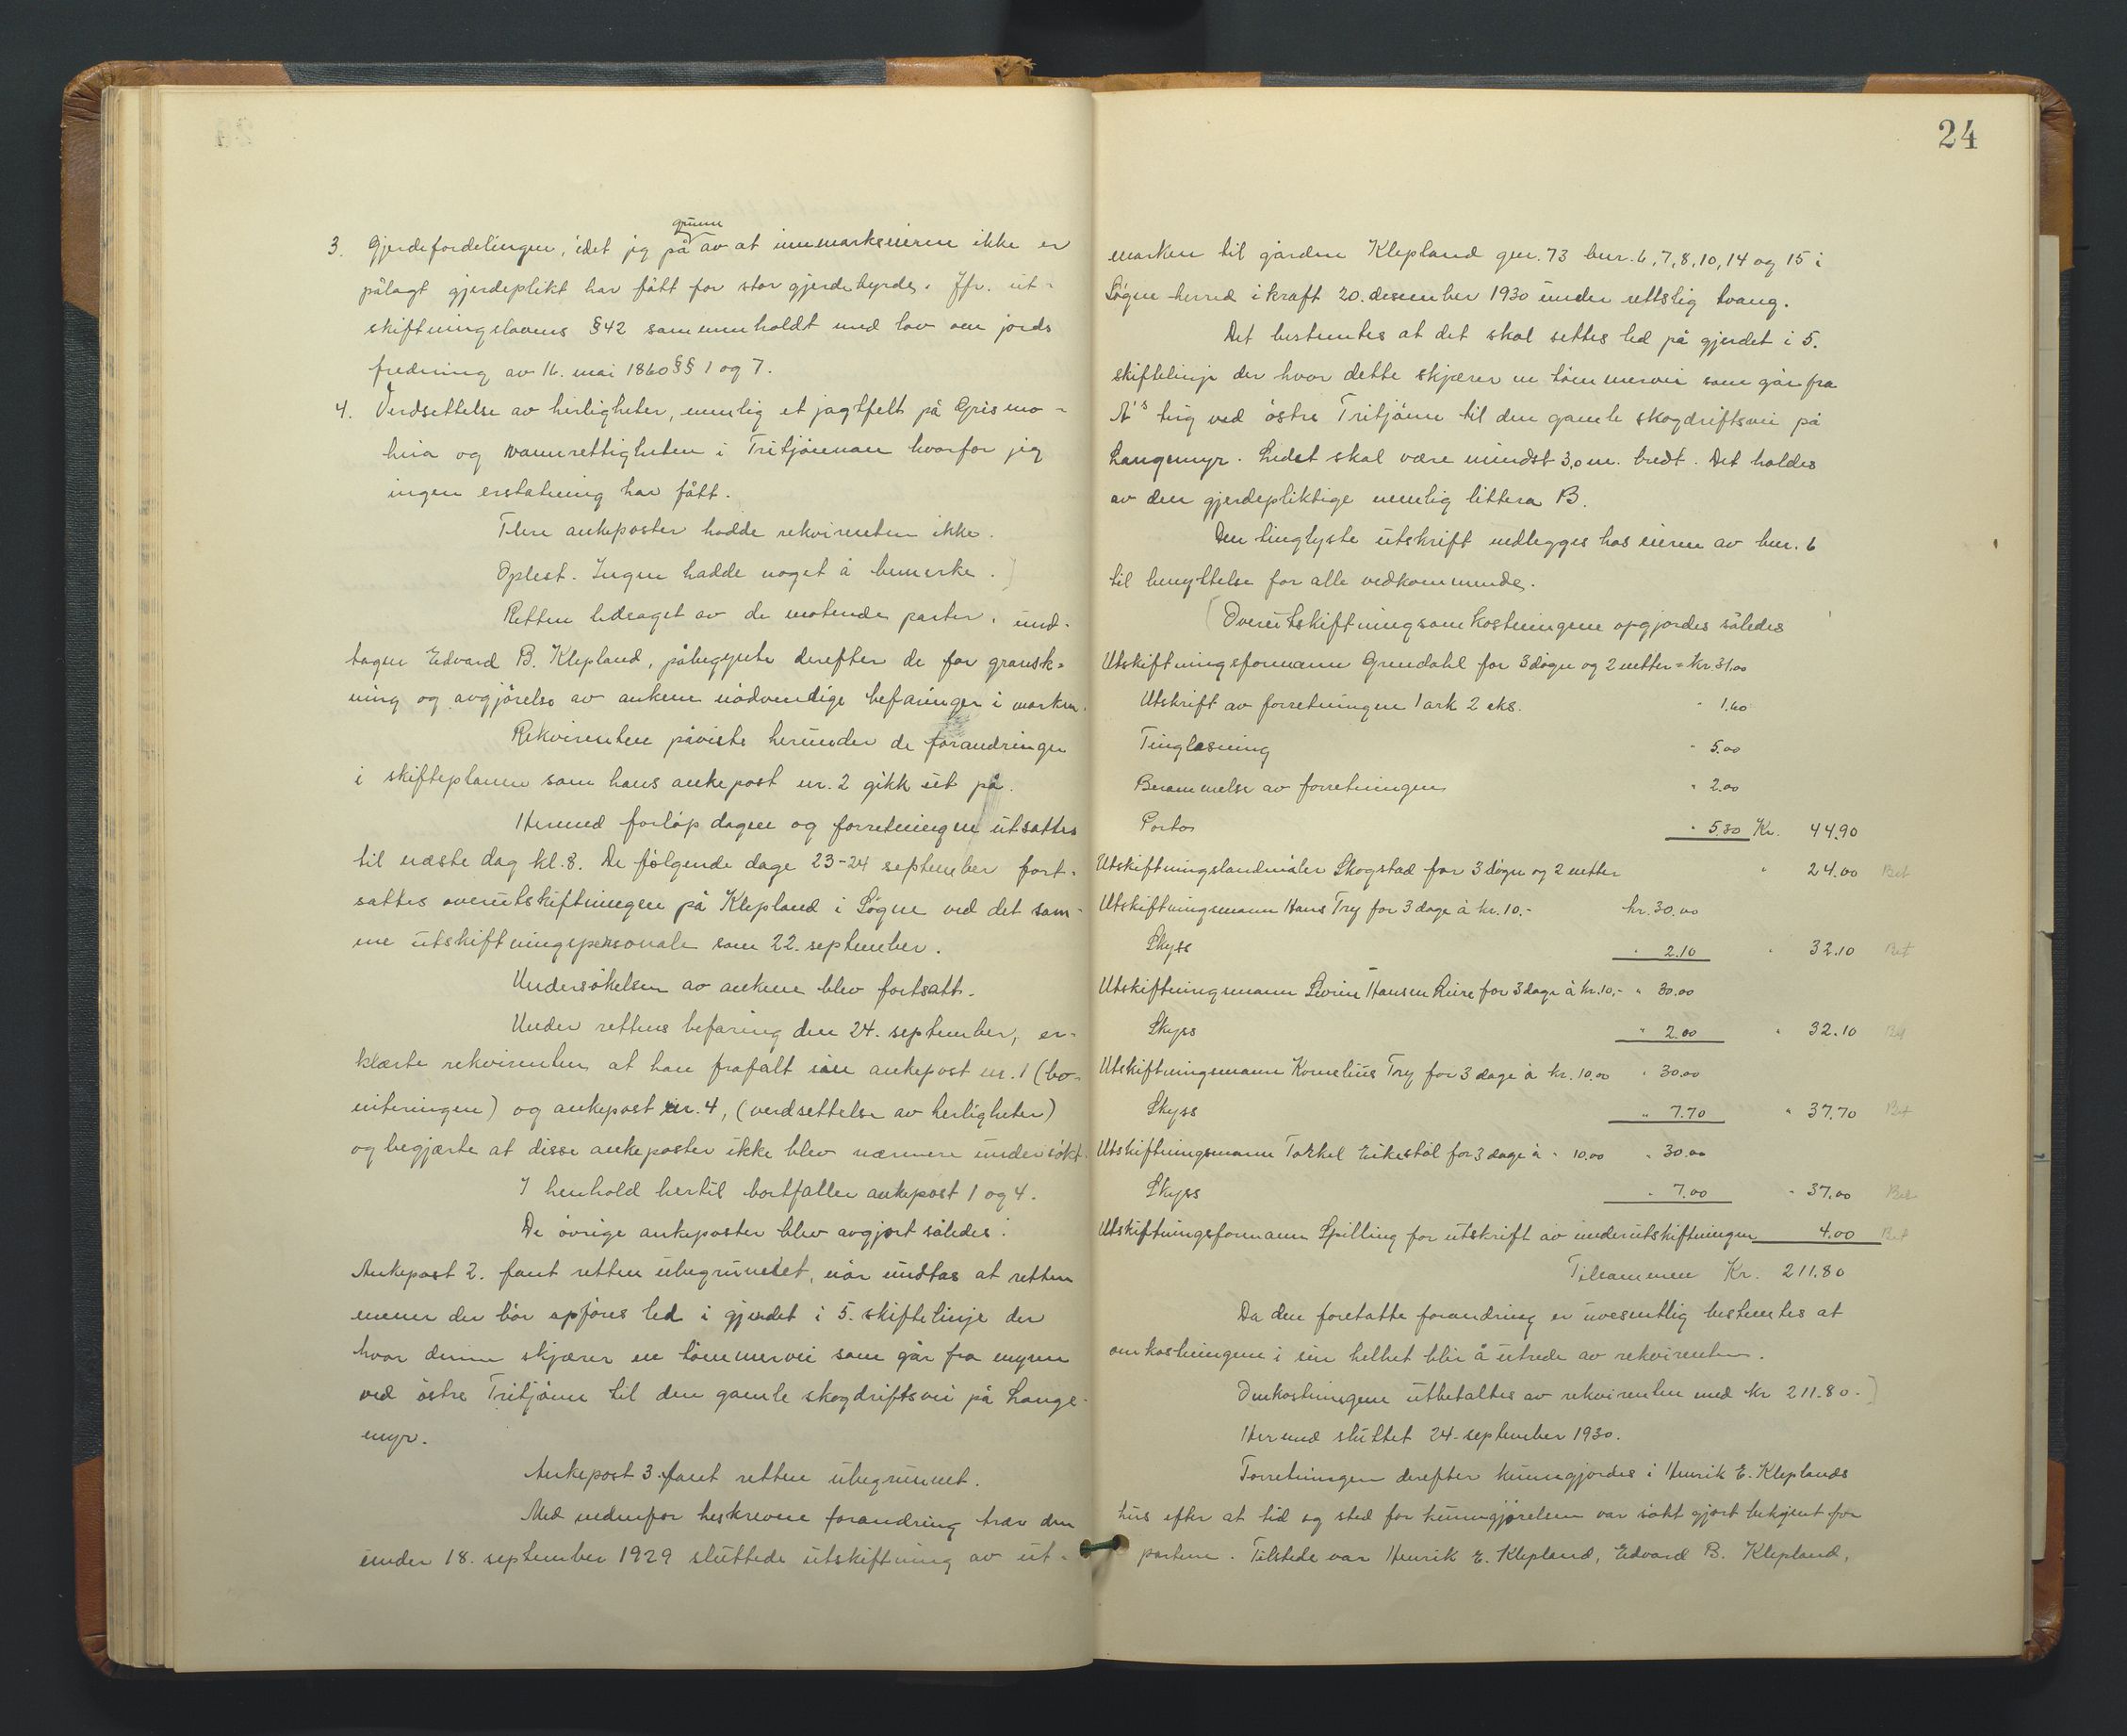 24
3. Gjerdefordelingen, idet jeg på grunn av at innmarkseieren ikke er
pålagt gjerdeplikt har fått for stor gjerdebyrde. Jfr. ut-
skiftningslovens § 42 sammenholdt med lov om jords
fredning av 16. mai 1860 §§ 1 og 7.
4. Verdsettelse av herligheter, nemlig et jagtfelt på Grismo-
heia og vannrettigheten i Tritjönnan hvorfor jeg
ingen erstatning har fått.
Flere ankeposter hadde rekvirenten ikke.
Oplest. Ingen hadde noget å bemerke.]
Retten ledsaget av de møtende parter, und-
tagen Edvard B. Klepland, påbegynte derefter de for gransk-
ning og avgjörelse av ankene nödvendige befaringer i marken.
Rekvirenten påviste herunder de forandringer
i skifteplanen som hans ankepost nr. 2 gikk ut på.
Hermed forlöp dagen og forretningen utsattes
til næste dag kl. 8. De fölgende dage 23-24 september fort-
sattes overutskiftningen på Klepland i Sögne ved det sam-
me utskiftningspersonale som 22. september.
Undersökelsen av ankene blev fortsatt.
Under rettens befaring den 24. september, er-
klærte rekvirenten at han frafalt sin ankepost nr. 1 (bo-
niteringen) og ankepost nr. 4, (verdsettelse av herligheter)
og begjærte at disse ankeposter ikke blev nærmere undersökt.
I henhold hertil bortfaller ankepost 1 og 4.
De övrige ankeposter blev avgjort således:
Ankepost 2. fant retten ubegrundet, når undtas at retten
mener der bör opföres led i gjerdet i 5. skiftelinje der
hvor denne skjærer en tömmervei som går fra myren
ved östre Tritjönn til den gamle skogdriftsvei på Lange-
myr.
Ankepost 3. fant retten ubegrunnet.
Med nedenfor beskrevne forandring trær den
under 18. september 1929 sluttede utskiftning av ut-
marken til gården Klepland gnr. 73 bnr. 6, 7, 8, 10, 14 og 15 i
Sögne herred i kraft 20. desember 1930 under rettslig tvang.
Det bestemtes at det skal settes led på gjerdet i 5.
skiftelinje der hvor dette skjærer en tömmervei som går fra
A's teig ved östre Tritjönn til den gamle skogdriftsvei på
Langemyr. Ledet skal være mindst 3,0 m. bredt. Det holdes
av den gjerdepliktige nemlig littera B.
Den tinglyste utskrift nedlegges hos eieren av bnr. 6
til benyttelse for alle vedkommende.
[Overutskiftningsomkostningene opgjordes således
Utskiftningsformann Grendahl for 3 dögn og 2 netter = kr. 31.00
Utskrift av forretningen 1 ark 2 eks. " 1.60
Tinglesning " 5.00
Berammelse av forretningen " 2.00
Portos " 5.30 Kr. 44.90
Utskiftningslandmåler Skogstad for 3 dögn og 2 netter " 24.00 Bet
Utskiftningsmann Hans Try for 3 dage à kr. 10.- kr. 30.00
Skyss " 2.10 " 32.10 Bet
Utskiftningsmann Severin Hansen Reire for 3 dage à kr. 10,- " 30.00
Skyss " 2.00 " 32.10 Bet
Utskiftningsmann Kornelius Try for 3 dage à kr. 10.00 " 30.00
Skyss " 7.70 " 37.70 Bet
Utskiftningsmann Torkel Eikestöl for 3 dage à " 10.00 " 30.00
Skyss " 7.00 " 37.00 Bet
Utskiftningsformann Spilling for utskrift av underutskiftningen 4.00 Bet
Tilsammen Kr. 211.80
Da den foretatte forandring er uvesentlig bestemtes at
omkostningene i sin helhet blir å utrede av rekvirenten.
Omkostningene utbetaltes av rekvirenten med kr 211.80.]
Hermed sluttet 24. september 1930.
Forretningen derefter kunngjordes i Henrik E. Kleplands
hus efter at tid og sted for kunngjörelsen var sökt gjort bekjent for
partene. Tilstede var Henrik E. Klepland, Edvard B. Klepland,